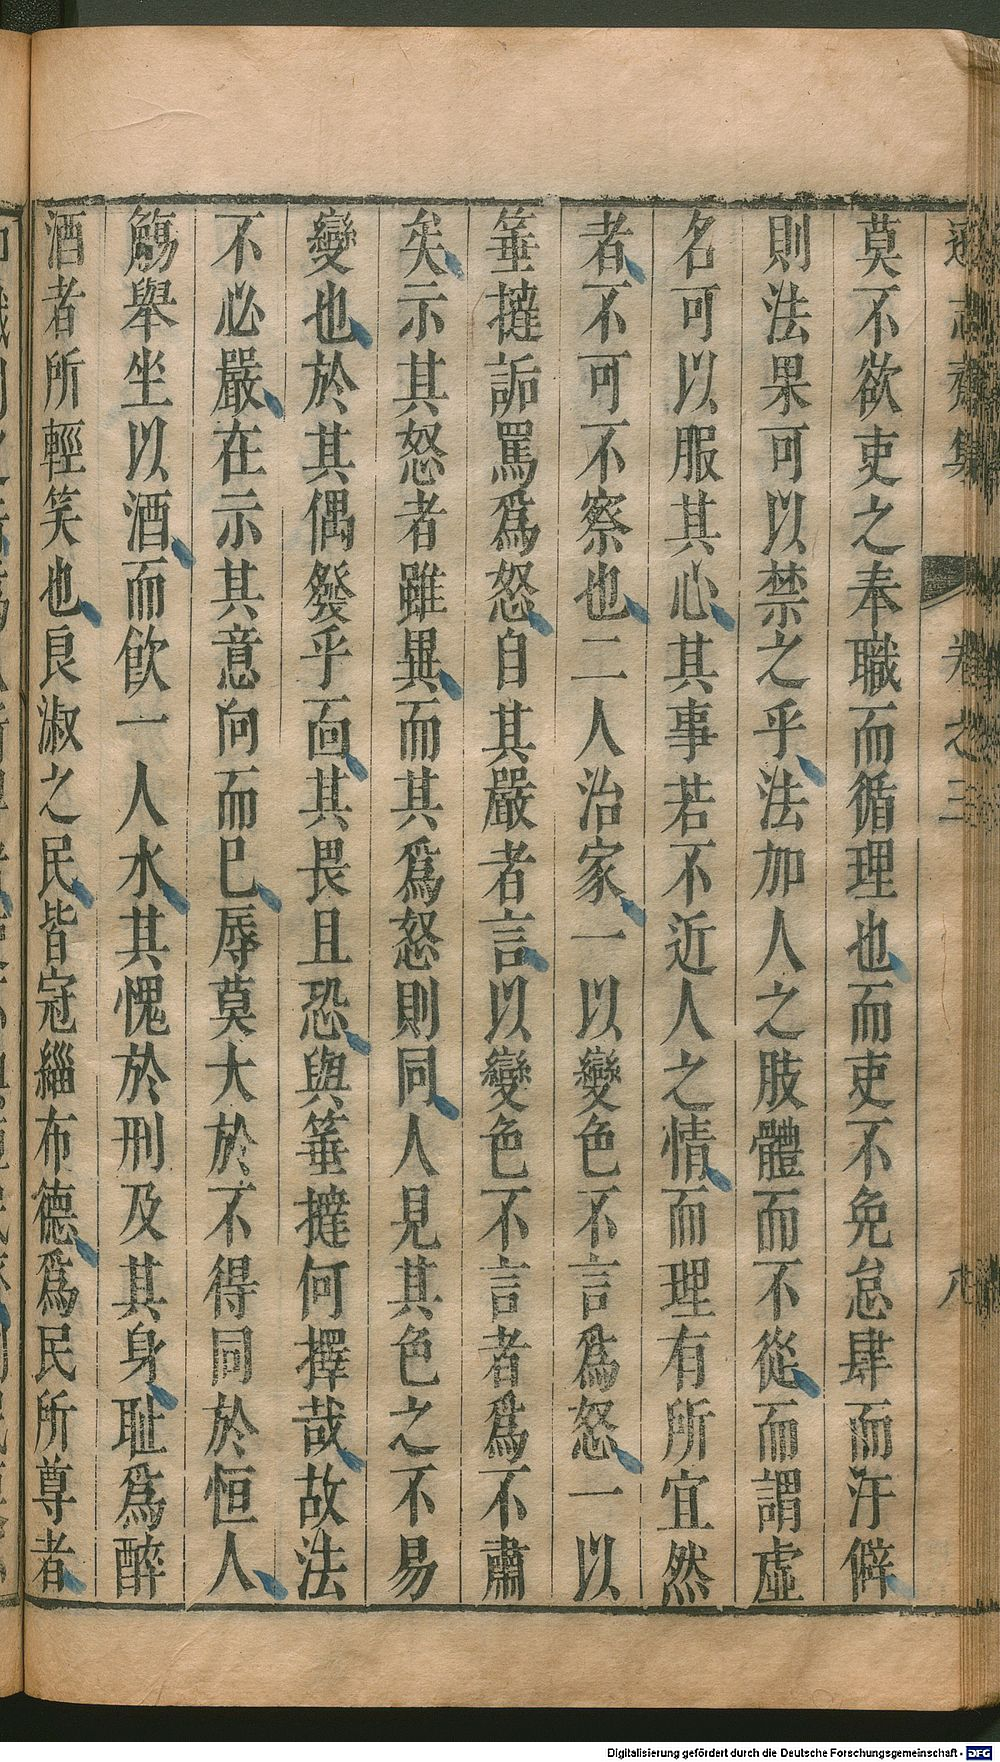 遜志齋集 卷之三 八
莫不欲吏之奉職而循理也而吏不免怠肆而汙僻
則法果可以禁之乎法加人之肢體而不從而謂虛
名可以服其心其事若不近人之情而理有所宜然
者不可不察也二人治家一以變色不言爲怒一以
箠撻詬罵爲怒自其嚴者言以變色不言者爲不肅
矣示其怒者雖異而其爲怒則同人見其色之不易
變也於其偶發乎面其畏且恐與箠撻何擇哉故法
不必嚴在示其意向而已辱莫大於不得同於恒人
觴舉坐以酒而飲一人水其愧於刑及其身恥爲醉
酒者所輕笑也良淑之民皆冠緇布德爲民所尊者
Digitalisierung gefördert durch die Deutsche Forschungsgemeinschaft - DFG